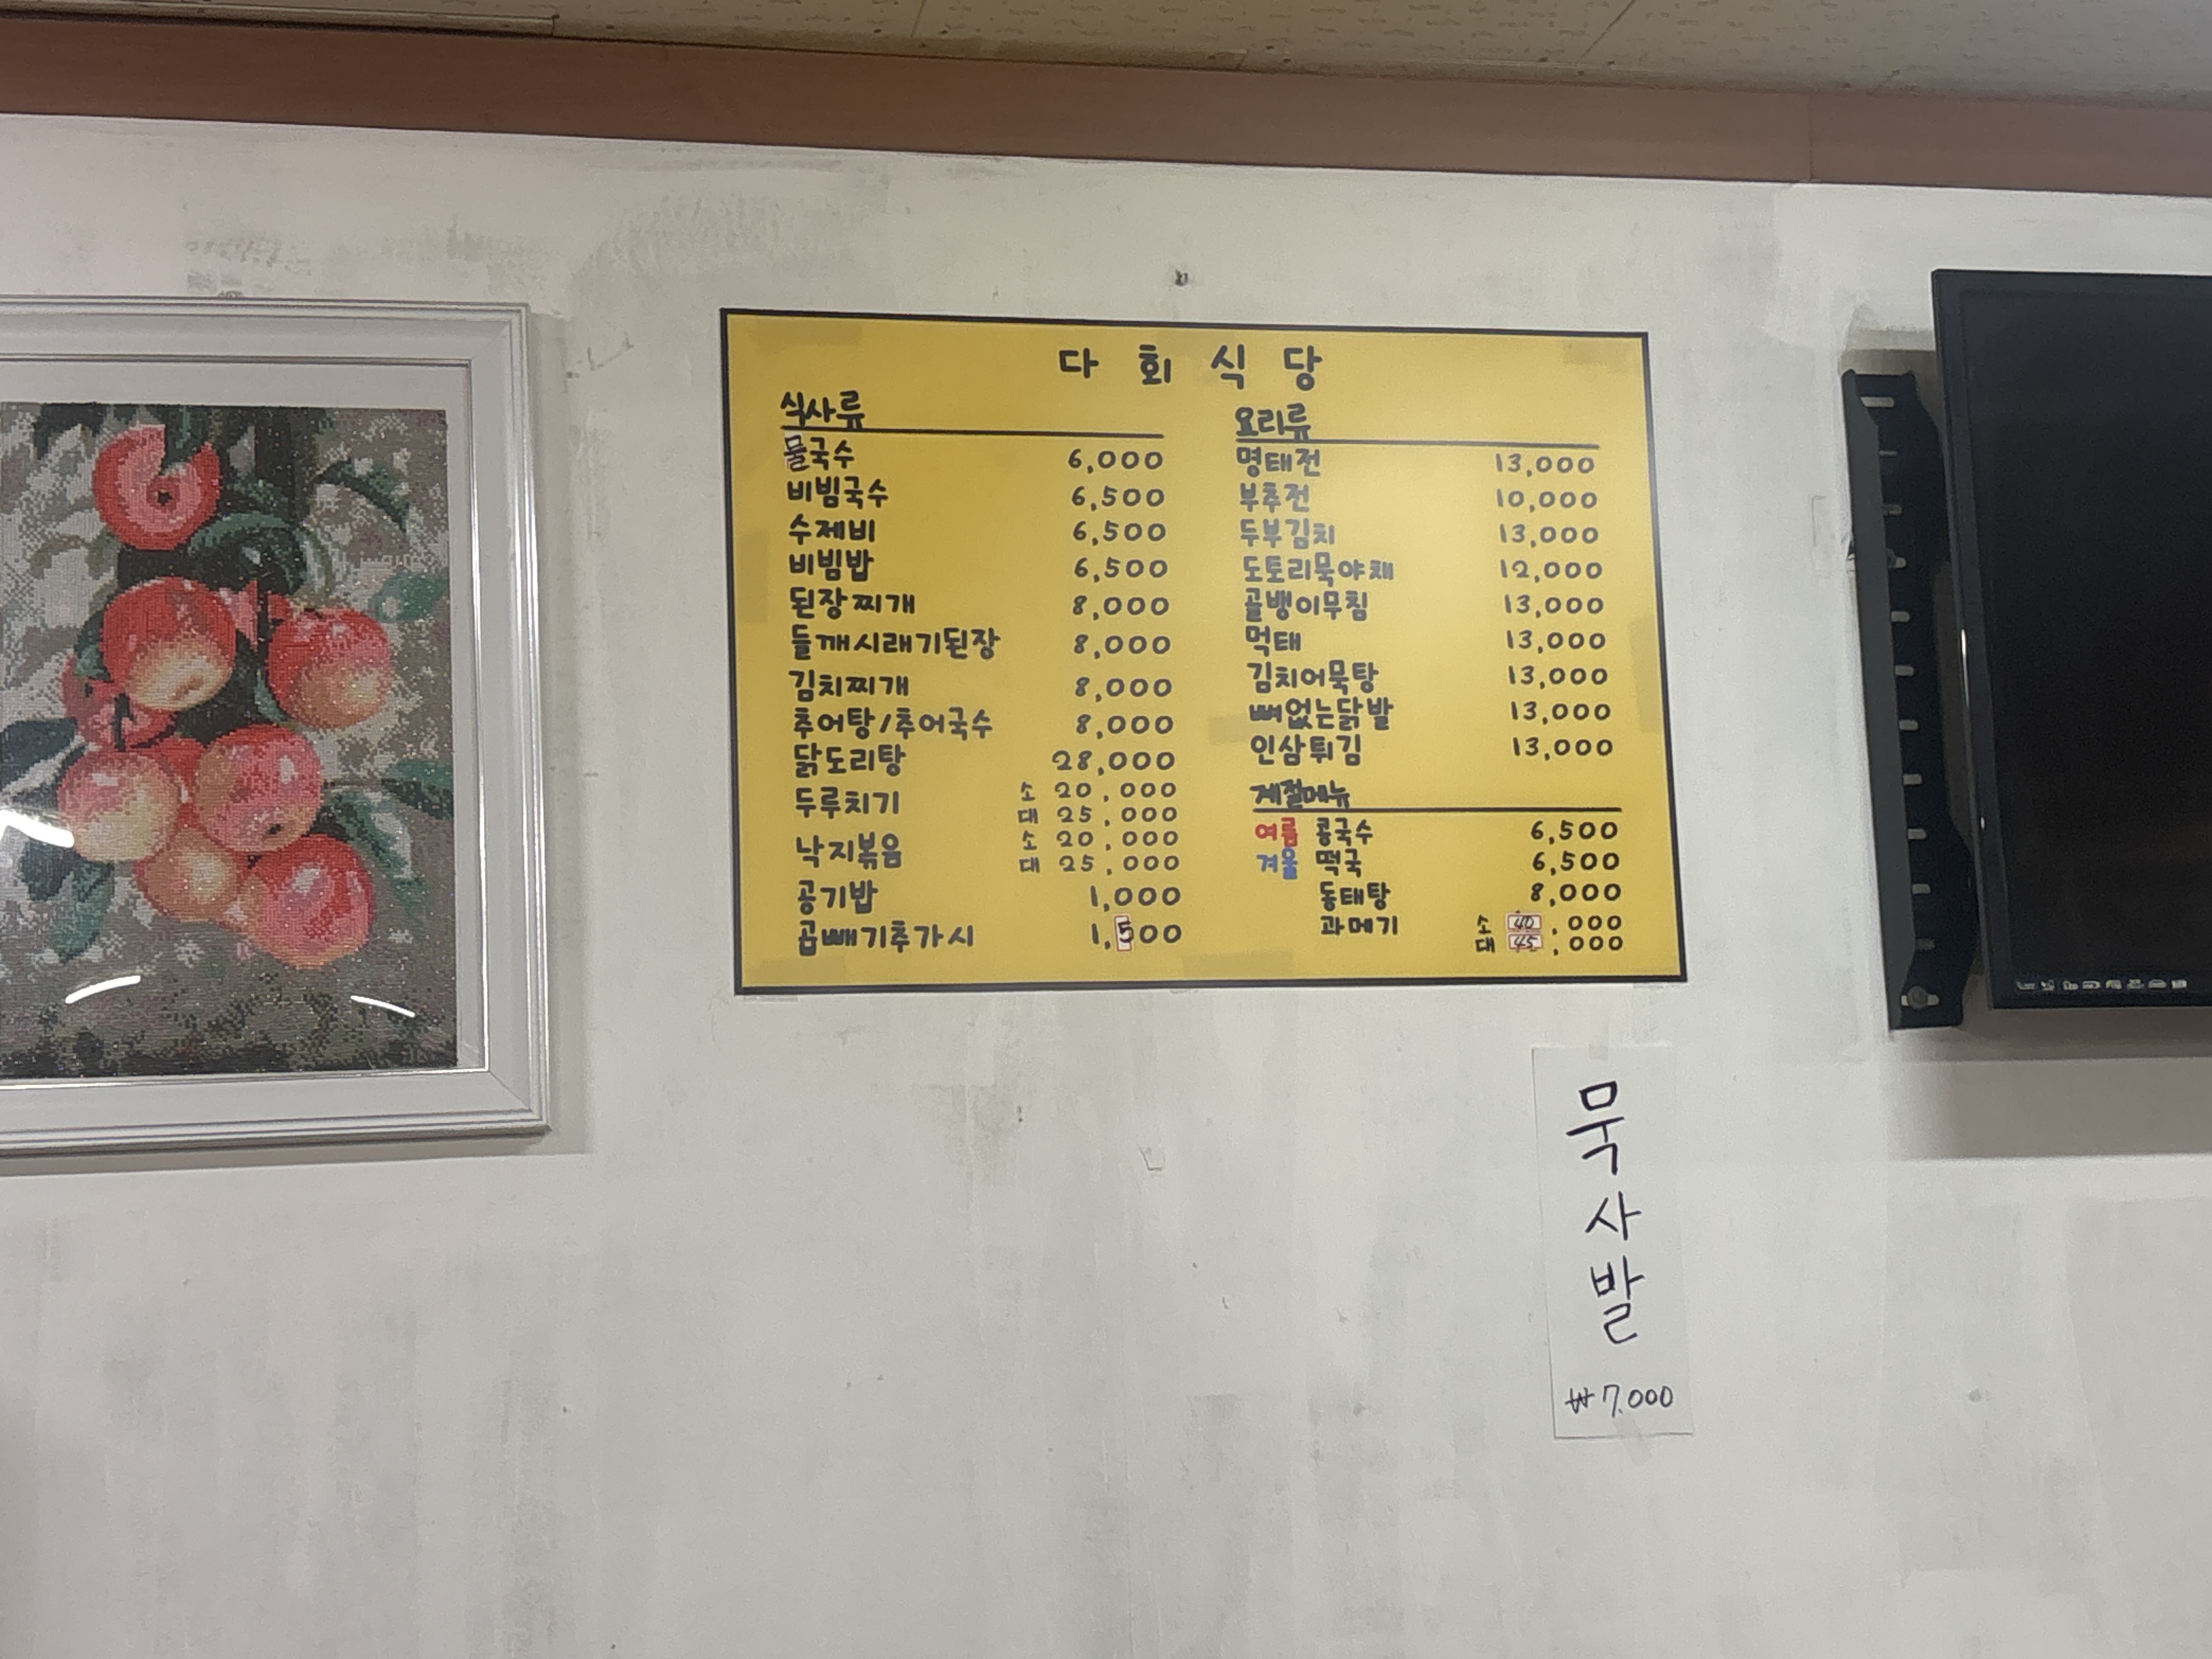 다 회 식 당
식사류
물국수 6,000
비빔국수 6,500
수제비 6,500
비빔밥 6,500
된장찌개 8,000
들깨시래기된장 8,000
김치찌개 8,000
추어탕/추어국수 8,000
닭도리탕 28,000
두루치기 소 20,000
대 25,000
낙지볶음 소 20,000
대 25,000
공기밥 1,000
곱빼기추가시 1,500
요리류
명태전 13,000
부추전 10,000
두부김치 13,000
도토리묵야채 12,000
골뱅이무침 13,000
먹태 13,000
김치어묵탕 13,000
뼈없는닭발 13,000
인삼튀김 13,000
계절메뉴
여름 콩국수 6,500
겨울 떡국 6,500
동태탕 8,000
과메기 소 40,000
대 45,000
묵사발
₩7.000